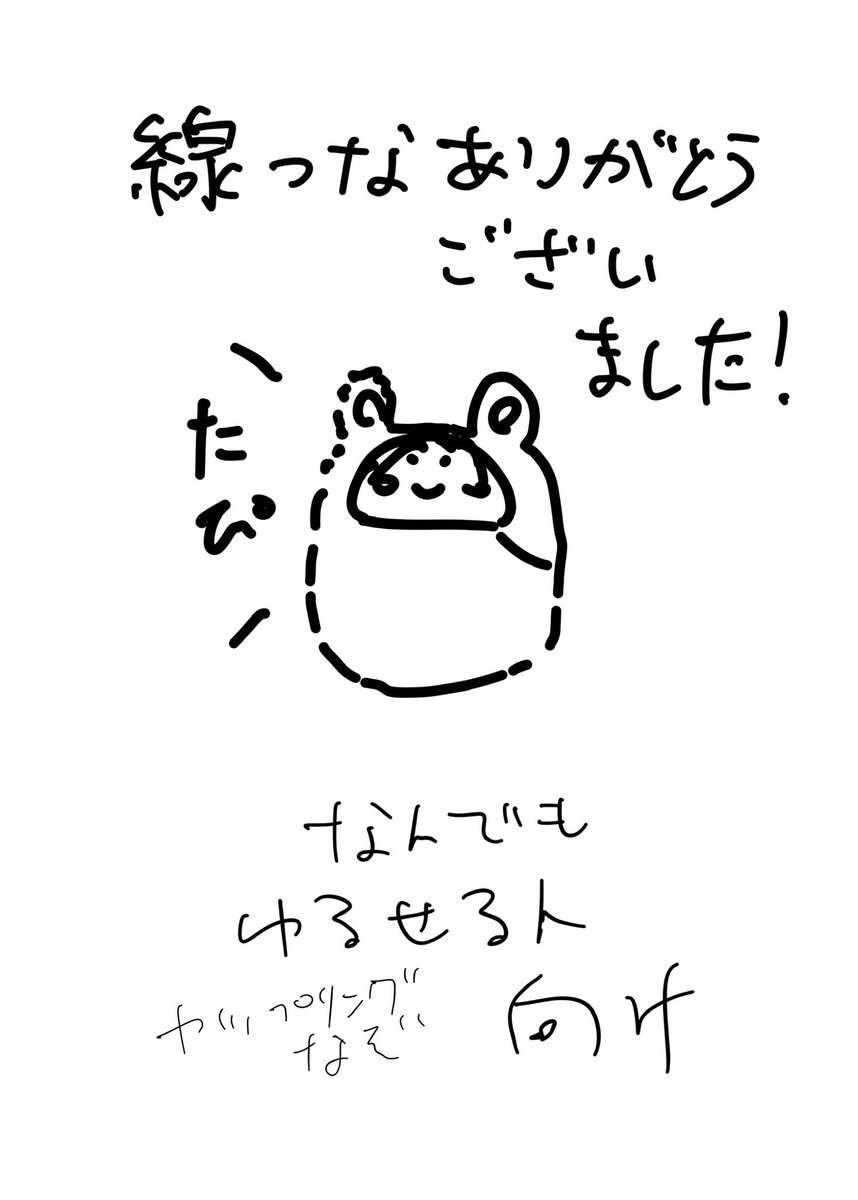 線つなありがとう
ござい
ました!
たぴ
なんでも
ゆるせる人
向け
カップリング
なぞ